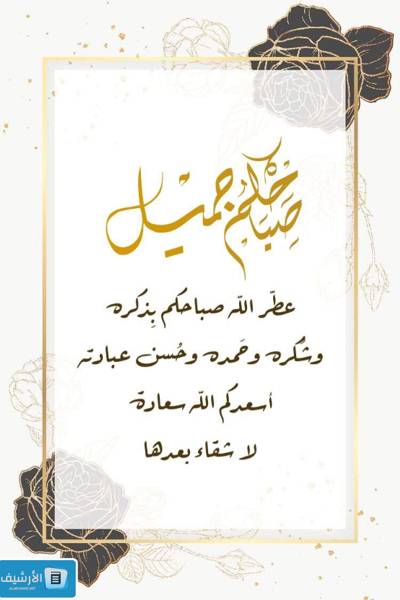 صباحكم جميل
عطّر الله صباحكم بِذكره
وشُكره وحَمده وحُسن عبادته
أسعدكم الله سعادة
لا شقاء بعدها
الأرشيف